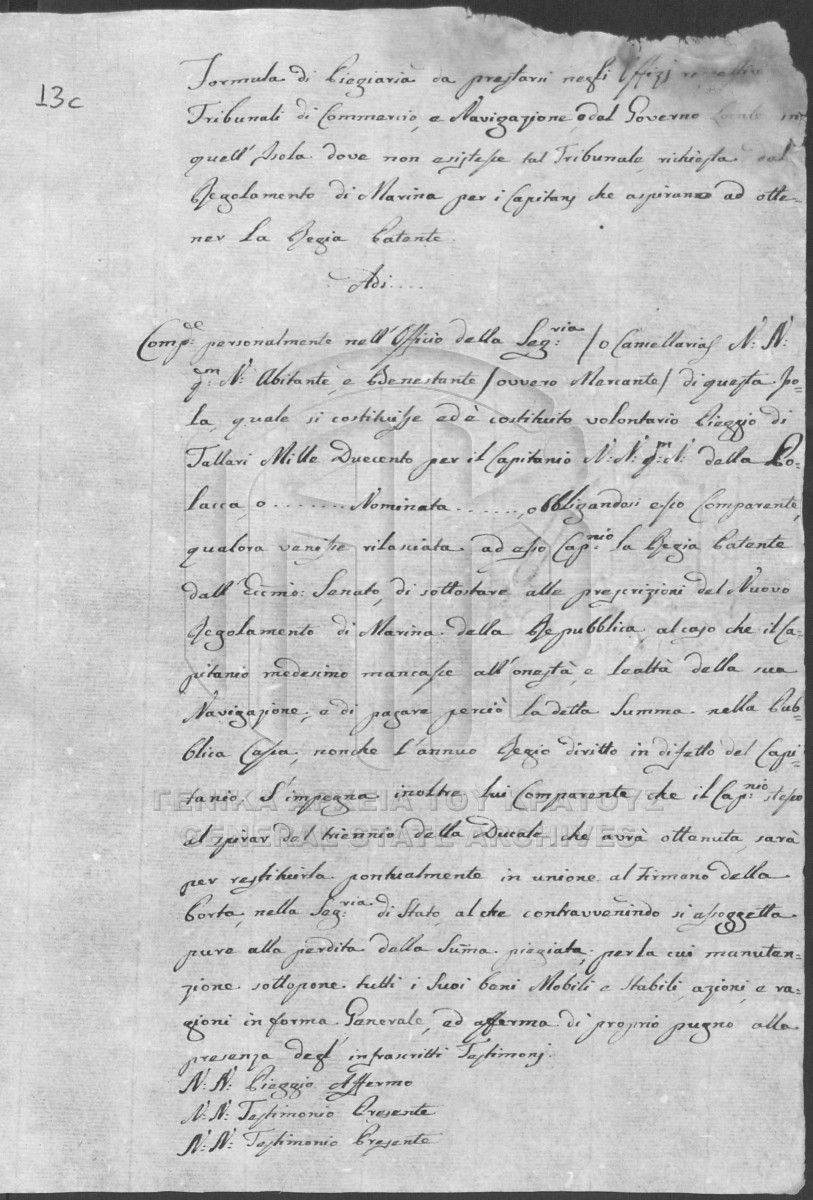 13c
Formula di Pieggiaria da prestarsi negli Offizj rispettivi
Tribunali di Commercio, e Navigazione, o dal Governo Locale in
quell' Isola dove non esistesse tal Tribunale, richiesta dal
Regolamento di Marina per i Capitanj che aspirano ad otte-
ner la Regia Patente.
Adi....
Comp:de personalmente nell' Officio della Seg:ria /o Cancellaria/ N: N:
q:m N: Abitante, e Benestante /ovvero Mercante/ di questa Iso-
la, quale si costituisse ed è costituito volontario Pieggio di
Tallari Mille Duecento per il Capitanio N: N: q:m N: della Po-
lacca, o ........ Nominata ......, obbligandosi esso Comparente,
qualora venisse rilasciata ad esso Cap:nio la Regia Patente
dall' Eccmo: Senato, di sottostare alle prescrizioni del Nuovo
Regolamento di Marina della Repubblica, al caso che il Ca-
pitanio medesimo mancasse all' onestà, e lealtà della sua
Navigazione; e di pagare perciò la detta Summa nella Pub-
blica Cassa, nonche l'annuo Regio diritto in difetto del Capi-
tanio. S'impegna inoltre lui Comparente che il Cap:nio stesso
al spirar del triennio della Ducale che avrà ottenuta, sarà
per restituirla pontualmente in unione al Firmano della
Porta, nella Seg:ria di Stato, al che contravvenindo si assoggetta
pure alla perdita della Suma piegiata; per la cui manuten-
zione sottopone tutti i Suoi beni Mobili e Stabili, azioni, e ra-
gioni in forma Generale, ed afferma di proprio pugno alla
presenza degl' infrascritti Testimonj.
N: N: Pieggio Affermo
N: N: Testimonio Presente
N: N: Testimonio Presente
ΓΕΝΙΚΑ ΑΡΧΕΙΑ ΤΟΥ ΚΡΑΤΟΥΣ
GENERAL STATE ARCHIVES